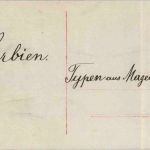 rbien.
Typen aus Maze